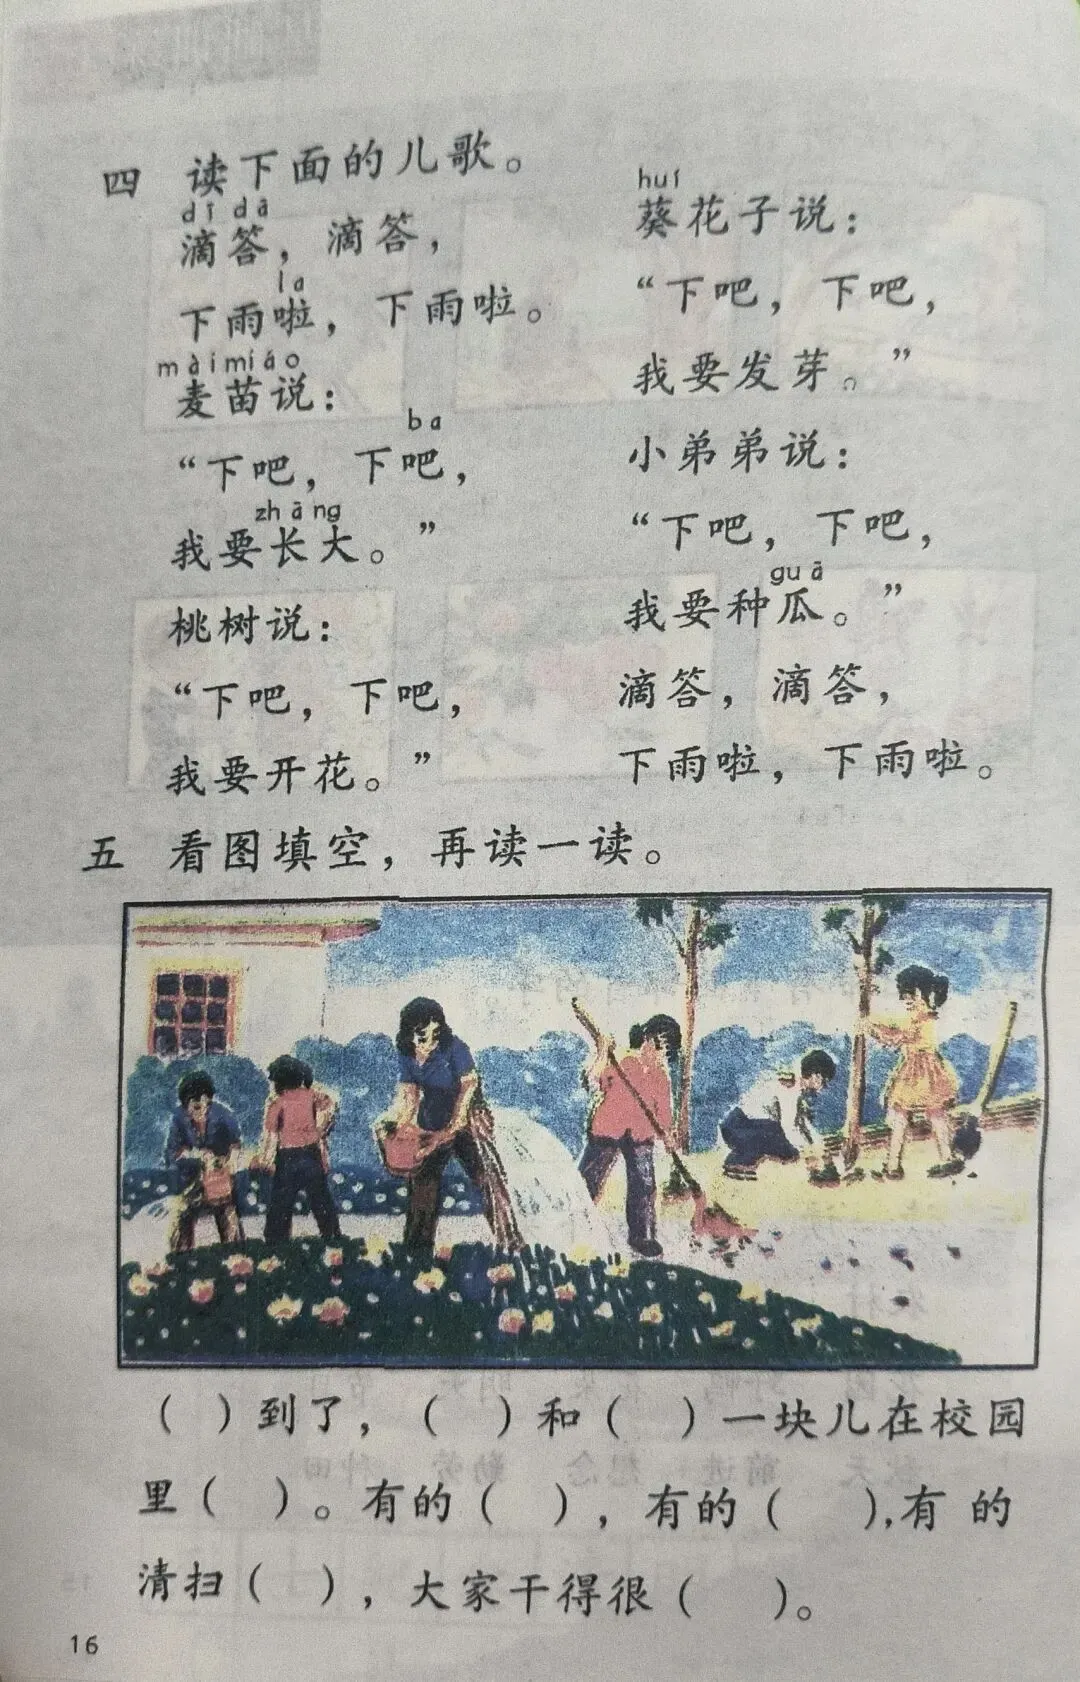 四 读下面的儿歌。
dī dā
滴答，滴答，
la
下雨啦，下雨啦。
mài miáo
麦苗说：
ba
“下吧，下吧，
zhǎng
我要长大。”
桃树说：
“下吧，下吧，
我要开花。”
huí
葵花子说：
“下吧，下吧，
我要发芽。”
小弟弟说：
“下吧，下吧，
guā
我要种瓜。”
滴答，滴答，
下雨啦，下雨啦。
五 看图填空，再读一读。
（ ）到了，（ ）和（ ）一块儿在校园
里（ ）。有的（ ），有的（ ），有 的
清扫（ ），大家干得很（ ）。
16